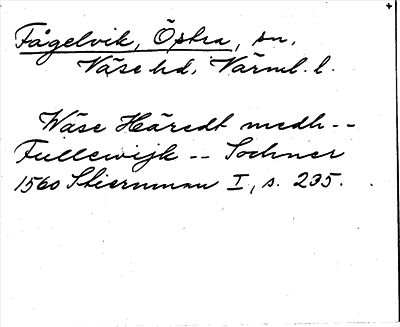 Fågelvik, Östra, sn,
Väse hd, Värml. l.
Wäse Häredt medh --
Fullewijk -- Sochner
1560 Stiernman I, s. 235.